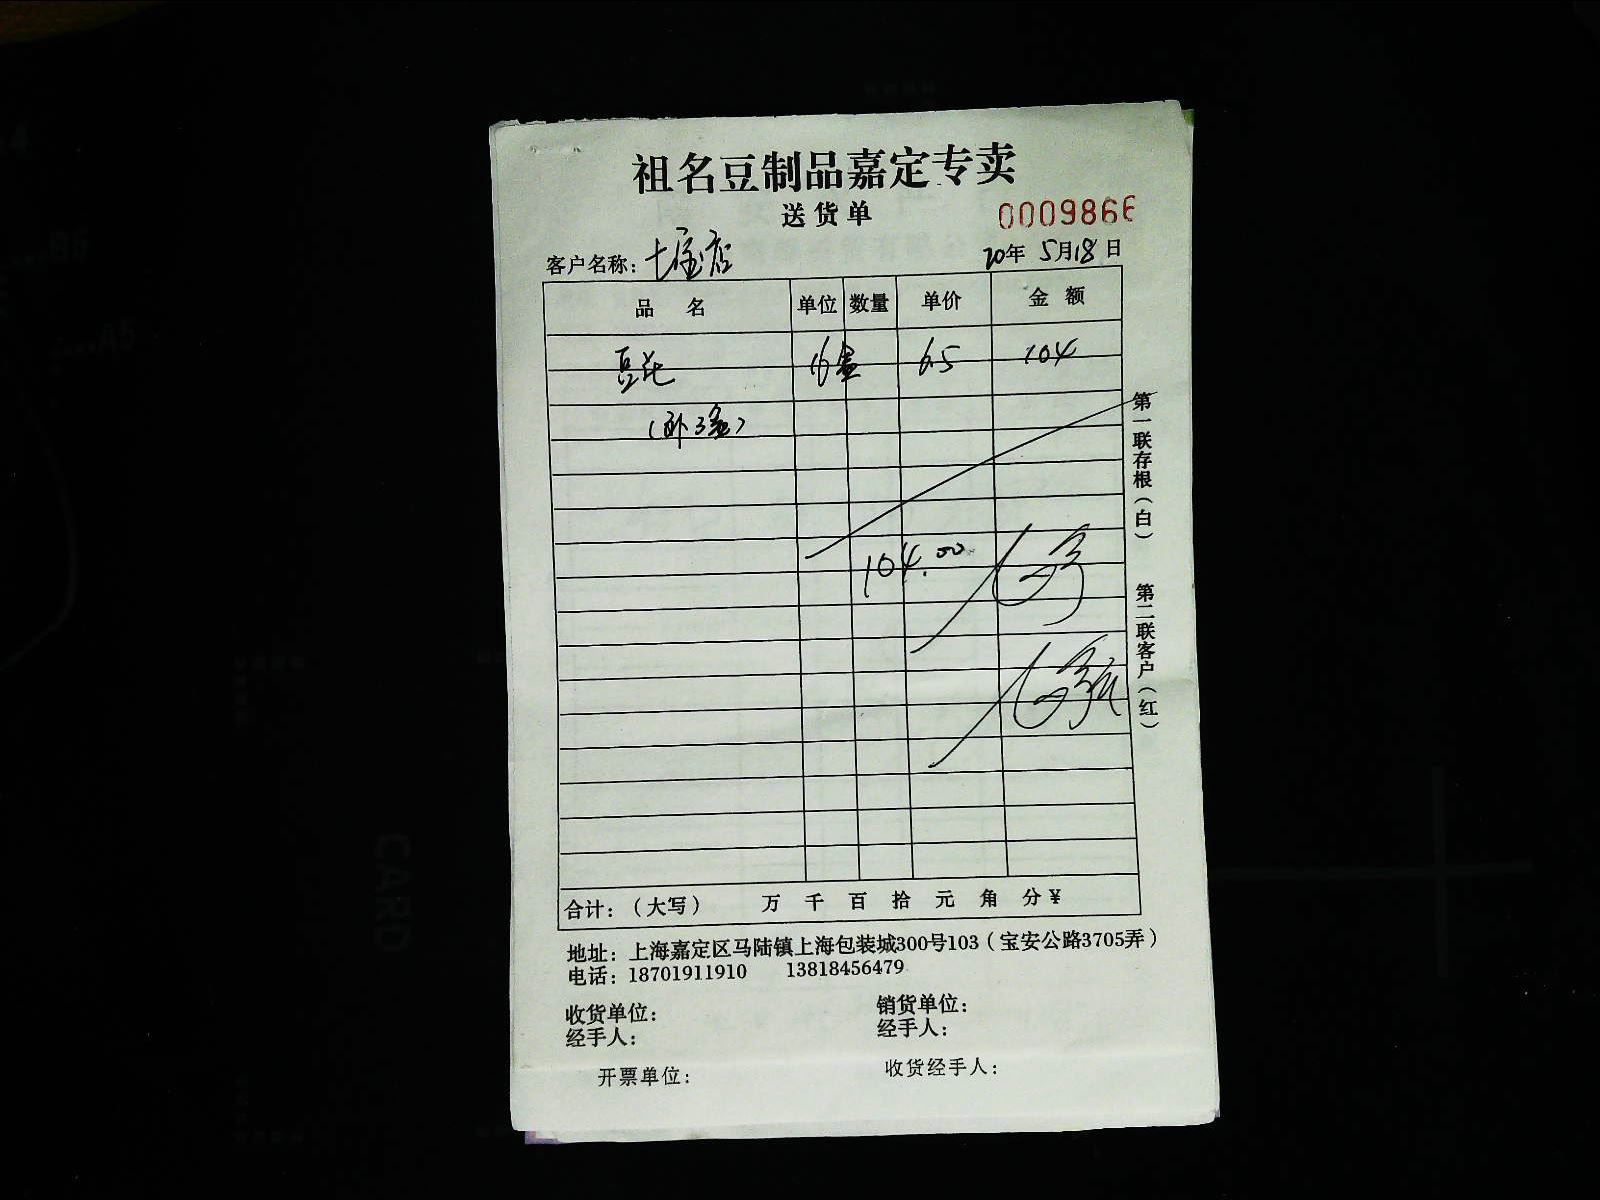 祖名豆制品嘉定专卖
送货单
0009866
客户名称：七宝店 20年 5月18日
品名 单位 数量 单价 金额
豆花 16盒 6.5 104
（补3盒）
104.00
合计：（大写） 万 千 百 拾 元 角 分 ¥
第一联存根（白）
第二联客户（红）
地址：上海嘉定区马陆镇上海包装城300号103（宝安公路3705弄）
电话：18701911910 13818456479
收货单位： 销货单位：
经手人： 经手人：
开票单位： 收货经手人：